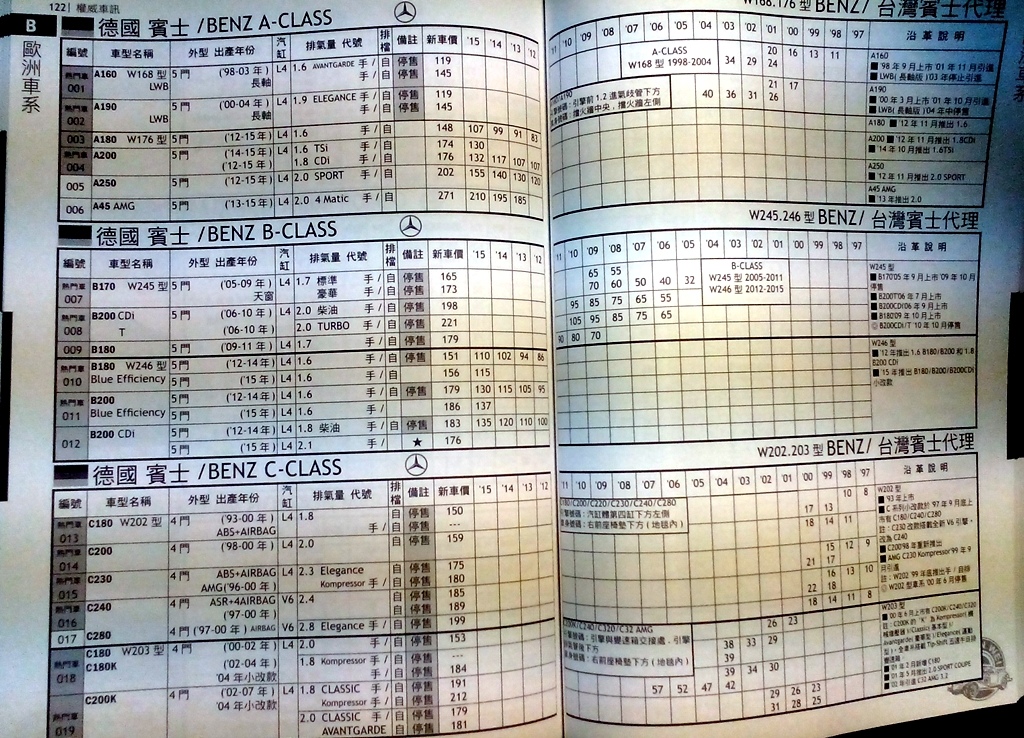 122 | 權威車訊
B
歐洲車系
德國 賓士 /BENZ A-CLASS
編號 車型名稱 外型 出產年份 汽缸 排氣量 代號 排檔 備註 新車價 '15 '14 '13 '12
熱門車 001 A160 W168 型 5 門 ('98-03 年) L4 1.6 AVANTGARDE 手 / 自 停售 119
LWB 長軸 停售 145
熱門車 002 A190 5 門 ('00-04 年) L4 1.9 ELEGANCE 手 / 自 停售 119
LWB 長軸 停售 145
003 A180 W176 型 5 門 ('12-15 年) L4 1.6 手 / 自 148 107 99 91 83
熱門車 004 A200 5 門 ('14-15 年) L4 1.6 TSi 手 / 自 174 130
('12-15 年) 1.8 CDi 176 132 117 107 107
005 A250 5 門 ('12-15 年) L4 2.0 SPORT 手 / 自 202 155 140 130 120
006 A45 AMG 5 門 ('13-15 年) L4 2.0 4 Matic 手 / 自 271 210 195 185
德國 賓士 /BENZ B-CLASS
編號 車型名稱 外型 出產年份 汽缸 排氣量 代號 排檔 備註 新車價 '15 '14 '13 '12
熱門車 007 B170 W245 型 5 門 ('05-09 年) L4 1.7 標準 手 / 自 停售 165
天窗 豪華 停售 173
熱門車 008 B200 CDi 5 門 ('06-10 年) L4 2.0 柴油 手 / 自 停售 198
T ('06-10 年) 2.0 TURBO 手 / 自 停售 221
009 B180 5 門 ('09-11 年) L4 1.7 手 / 自 停售 179
熱門車 010 B180 W246 型 5 門 ('12-14 年) L4 1.6 手 / 自 停售 151 110 102 94 86
Blue Efficiency 5 門 ('15 年) L4 1.6 手 / 自 156 115
熱門車 011 B200 5 門 ('12-14 年) L4 1.6 手 / 自 停售 179 130 115 105 95
Blue Efficiency 5 門 ('15 年) L4 1.6 手 / 186 137
012 B200 CDi 5 門 ('12-14 年) L4 1.8 柴油 手 / 自 停售 183 135 120 110 100
5 門 ('15 年) L4 2.1 手 / ★ 176
德國 賓士 /BENZ C-CLASS
編號 車型名稱 外型 出產年份 汽缸 排氣量 代號 排檔 備註 新車價 '15 '14 '13 '12
熱門車 013 C180 W202 型 4 門 ('93-00 年) L4 1.8 自 停售 150
ABS+AIRBAG 手 / 自 停售 ---
熱門車 014 C200 4 門 ('98-00 年) L4 2.0 自 停售 159
熱門車 015 C230 4 門 ABS+AIRBAG L4 2.3 Elegance 自 停售 175
AMG('96-00 年) Kompressor 手 / 自 停售 180
熱門車 016 C240 4 門 ASR+4AIRBAG V6 2.4 自 停售 185
('97-00 年) 自 停售 189
017 C280 4 門 ('97-00 年) AIRBAG V6 2.8 Elegance 手 / 自 停售 199
熱門車 018 C180 W203 型 4 門 ('00-02 年) L4 2.0 手 / 自 停售 153
C180K ('02-04 年) 1.8 Kompressor 手 / 自 停售 ---
'04 年小改款 停售 184
熱門車 019 C200K 4 門 ('02-07 年) L4 1.8 CLASSIC 手 / 自 停售 191
'04 年小改款 Kompressor 手 / 自 停售 212
2.0 CLASSIC 手 / 自 停售 179
AVANTGARDE 手 / 自 停售 181
W168.176 型 BENZ/ 台灣賓士代理
'11 '10 '09 '08 '07 '06 '05 '04 '03 '02 '01 '00 '99 '98 '97 沿革說明
A-CLASS
W168 型 1998-2004
20 16 13 11
34 29 24
21 17
40 36 31 26
引擎號碼：引擎前 1.2 進氣歧管下方
擋火牆中央，擋火牆左側
A160
■ '98 年 9 月上市 '01 年 11 月引進
■ LWB( 長軸版 )'03 年停止引進
A190
■ '00 年 3 月上市 '01 年 10 月引進
■ LWB( 長軸版 )'04 年中停售
A180 ■ '12 年 11 月推出 1.6
A200 ■ '12 年 11 月推出 1.8CDi
■ '14 年 10 月推出 1.6TSi
A250
■ '12 年 11 月推出 2.0 SPORT
A45 AMG
■ '13 年推出 2.0
W245.246 型 BENZ/ 台灣賓士代理
'11 '10 '09 '08 '07 '06 '05 '04 '03 '02 '01 '00 '99 '98 '97 沿革說明
B-CLASS
W245 型 2005-2011
W246 型 2012-2015
65 55
70 60 50 40 32
95 85 75 65 55
105 95 85 75 65
90 80 70
W245 型
■ B170'05 年 9 月上市 '09 年 10 月停售
■ B200T'06 年 7 月上市
■ B200CDi'06 年 9 月上市
■ B180'09 年 10 月上市
◎ B200CDi/T '10 年 10 月停售
W246 型
■ '12 年推出 1.6 B180/B200 和 1.8 B200 CDi
■ '15 年推出 B180/B200/B200CDi 小改款
W202.203 型 BENZ/ 台灣賓士代理
'11 '10 '09 '08 '07 '06 '05 '04 '03 '02 '01 '00 '99 '98 '97 沿革說明
C180/C200/C220/C230/C240/C280
引擎號碼：汽缸體第四缸下方左側
車身號碼：右前座椅墊下方 ( 地毯內 )
10 8
17 13
18 14 11
15 12 9
21 17
16 13 10
22 18
18 14 11 8
26 23
C200K/C240/C320/C32 AMG
引擎號碼：引擎與變速箱交接處，引擎
車身號碼：右前座椅墊下方 ( 地毯內 )
38 33 29
39
39 34 30
57 52 47 42
29 26 23
31 28 25
W202 型
■ '93 年上市
■ C 系列小改款於 '97 年 9 月底上市有 C180/C240/C280
註：C230 改款搭載全新 V6 引擎，改為 C240
■ C200'98 年重新推出
■ AMG C230 Kompressor'99 年 9 月引進
註：W202 '99 年底推出手 / 自排
◎ W202 型車系 '00 年 6 月停售
W203 型
■ '01 年 2 月新增 C180
■ '01 年 5 月推出 2.0 SPORT COUPE
■ '02 年引進 C32 AMG 3.2